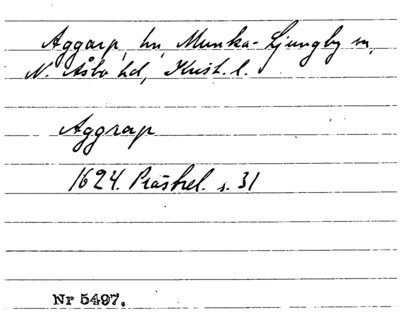 Aggarp, hn, Munka-Ljungby sn,
N. Åsbo hd, Krist. l.
Aggrap
1624. Prästrel. s. 31
Nr 5497.